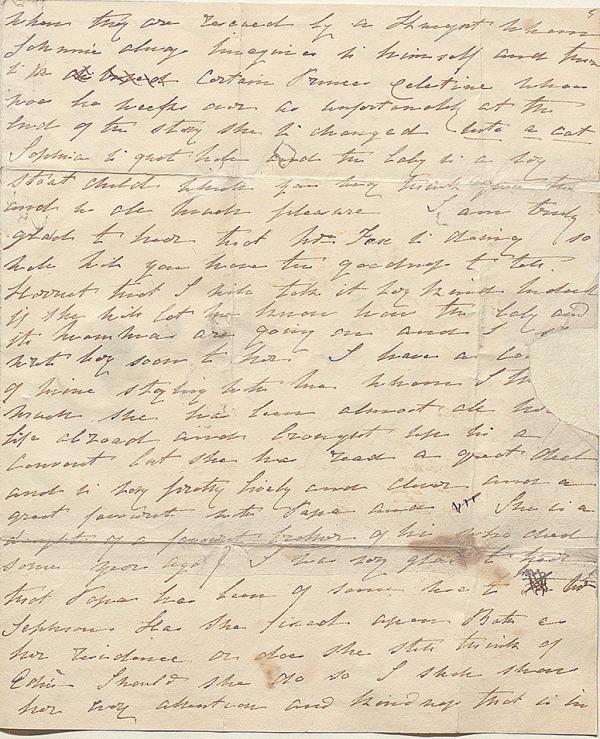 when they are rescued by a Knight whom
Johnnie always imagines is himself and there
is a certain Princess Celestine whom
now he weeps over as unfortunately at the
end of the story she is changed into a cat
Sophia is quite well and the baby is a very
stout child which you may think gives the
and us all much pleasure I am truly
glad to hear that Mrs Fox is doing so
well will you have the goodness to tell
Harriet that I will take it very kind indeed
if she will let me know how the baby and
its mamma are going on and I
write very soon to her I have a
of mine staying with me whom I
much she has been almost all her
life abroad and brought up in a
convent but she has read a great deal
and is very pretty lively and clever and a
great favourite with Papa and She is a
daughter of a favourite brother of his who died
some years ago I was very glad to hear
that Papa has been of some use to Mrs
Jephson Has she fixed upon Bath as
her residence or does she still think of
Edinr Should she do so I shall show
her every attention and kindness that is in